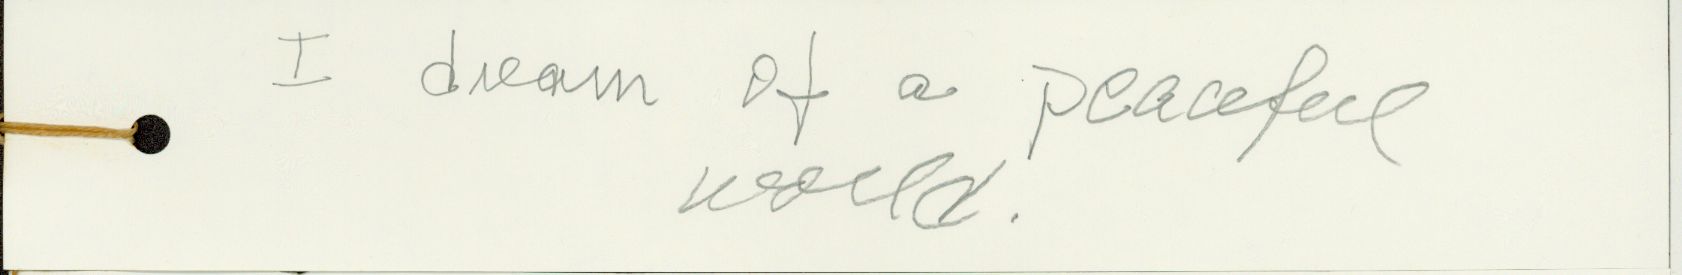 I dream of a peaceful
world.